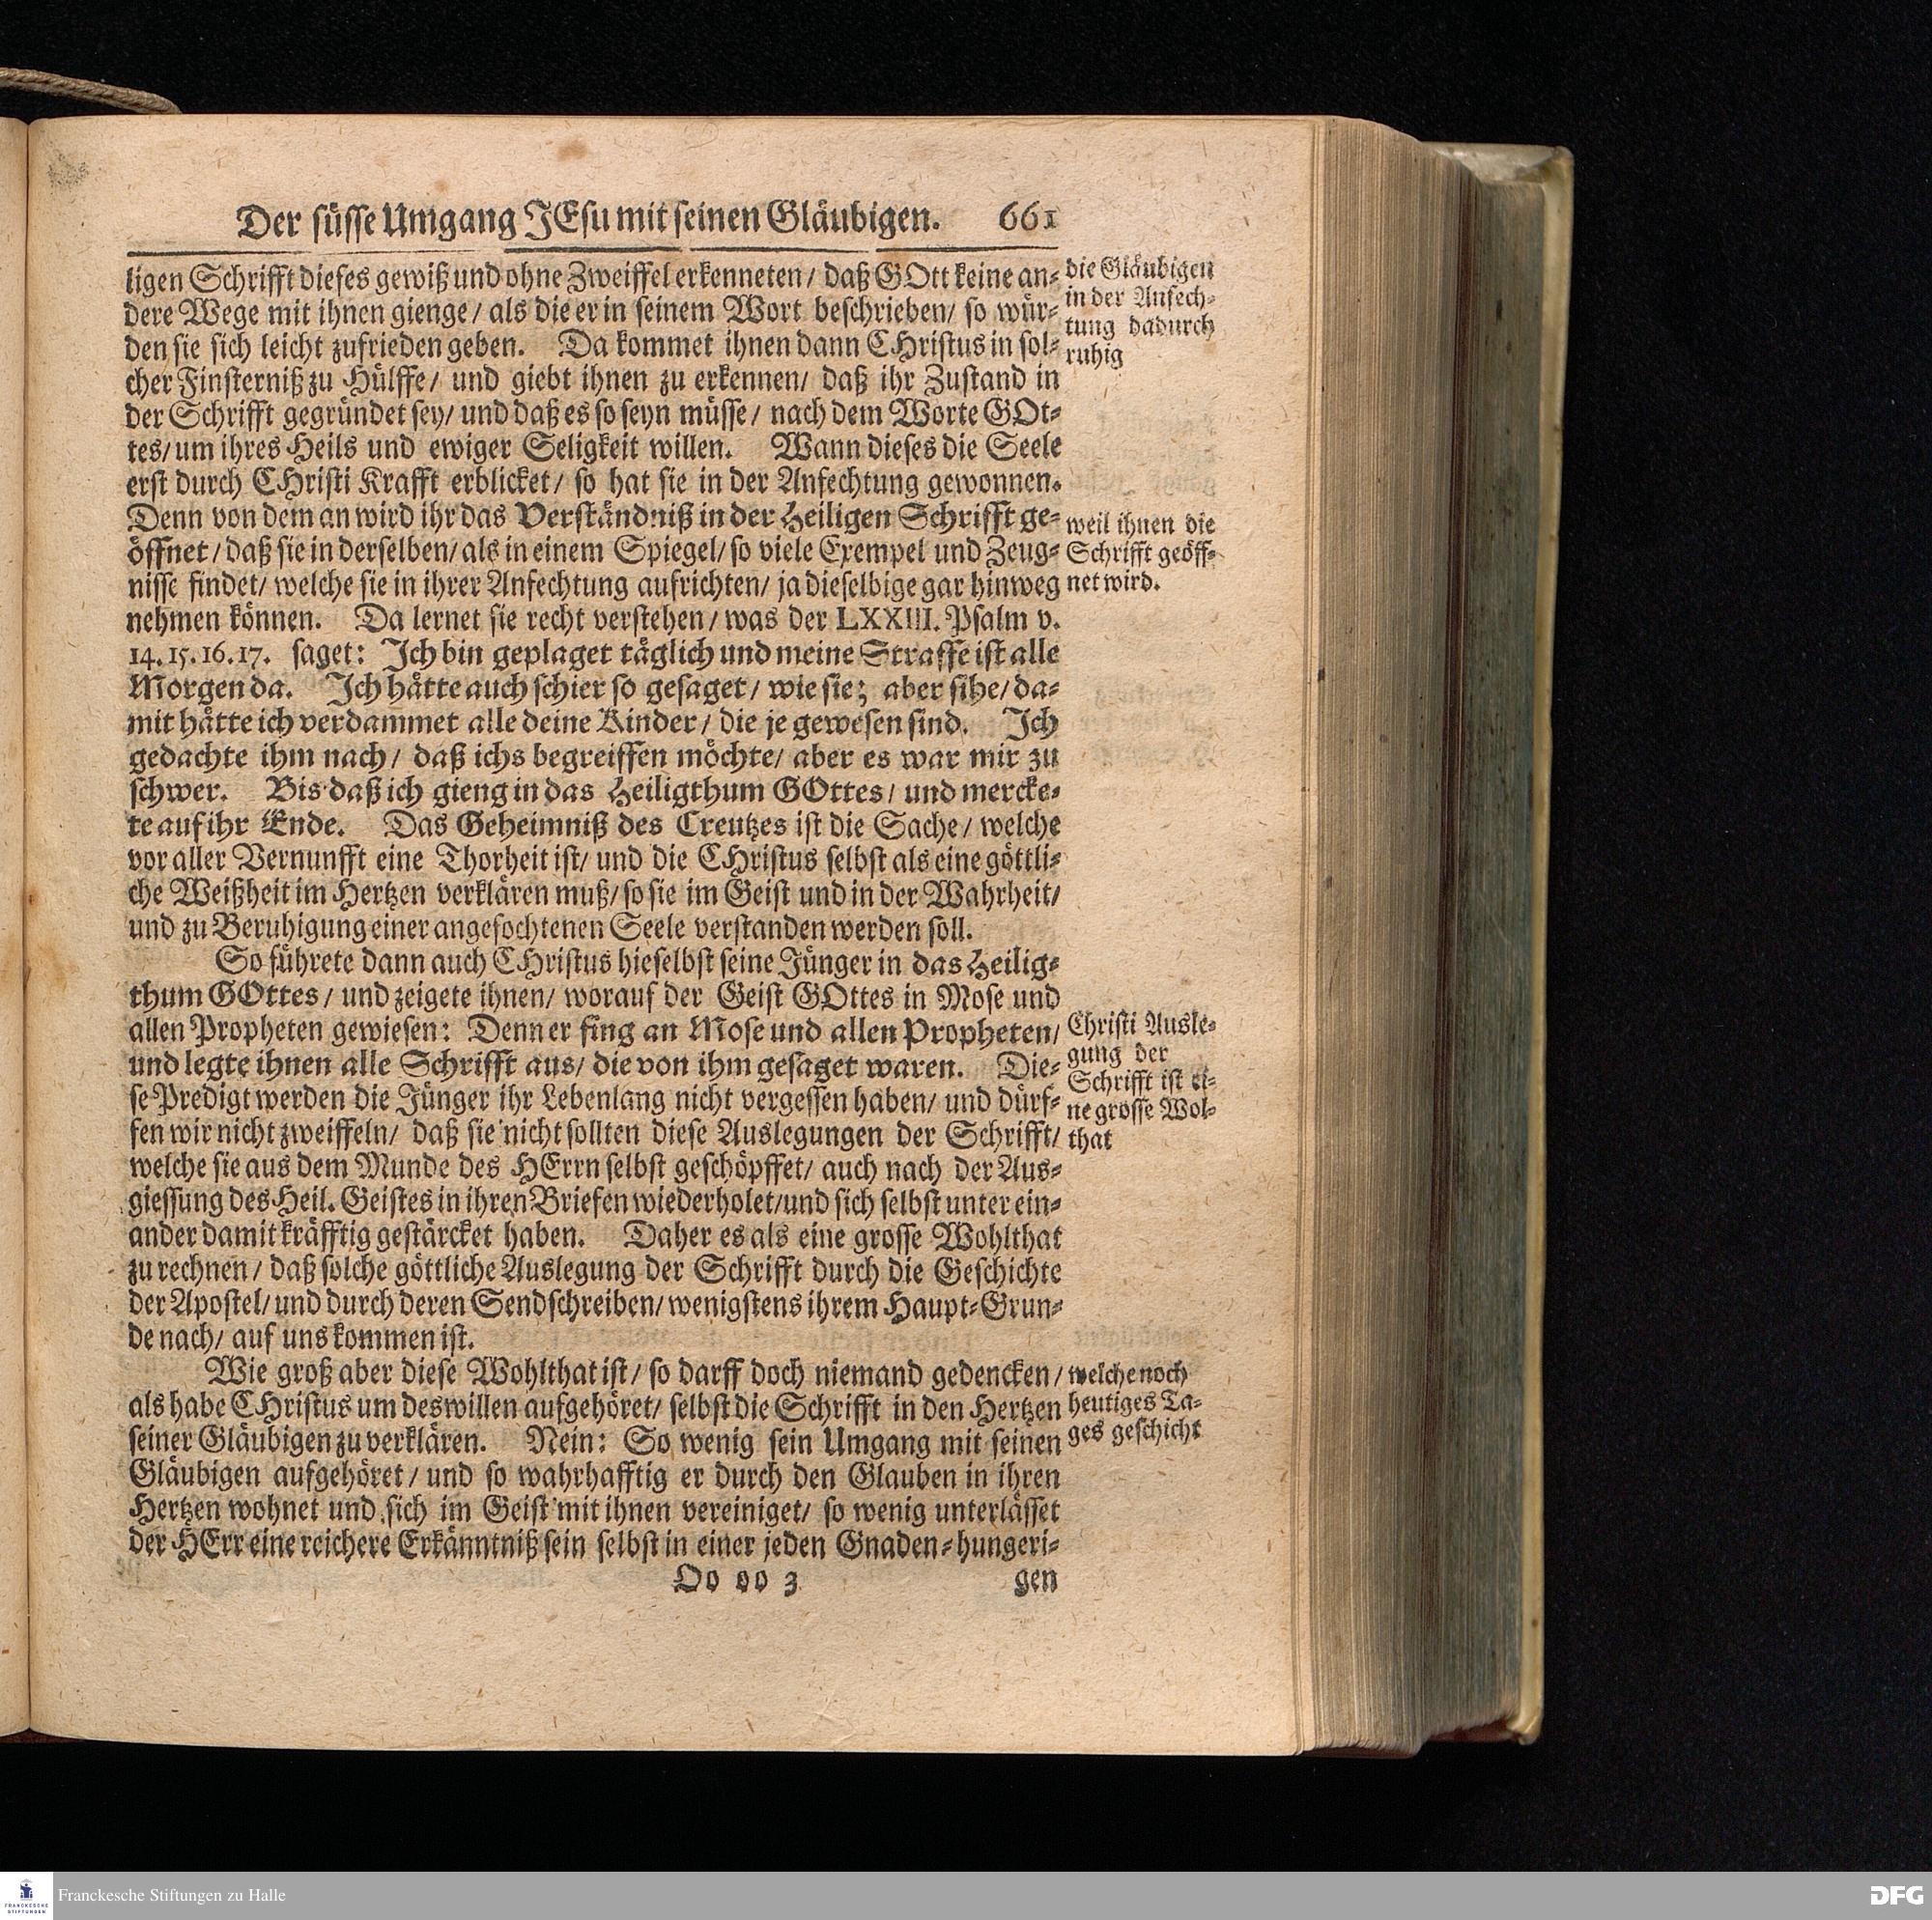 Der süsse Umgang JEsu mit seinen Gläubigen. 661
ligen Schrifft dieses gewiß und ohne Zweiffel erkenneten / daß GOtt keine an-
dere Wege mit ihnen gienge / als die er in seinem Wort beschrieben / so wür-
den sie sich leicht zufrieden geben. Da kommet ihnen dann CHristus in sol-
cher Finsterniß zu Hülffe / und giebt ihnen zu erkennen / daß ihr Zustand in
der Schrifft gegründet sey / und daß es so seyn müsse / nach dem Worte GOt-
tes / um ihres Heils und ewiger Seligkeit willen. Wann dieses die Seele
erst durch CHristi Krafft erblicket / so hat sie in der Anfechtung gewonnen.
Denn von dem an wird ihr das Verständniß in der Heiligen Schrifft ge-
öffnet / daß sie in derselben / als in einem Spiegel / so viele Exempel und Zeug-
nisse findet / welche sie in ihrer Anfechtung aufrichten / ja dieselbige gar hinweg
nehmen können. Da lernet sie recht verstehen / was der LXXIII. Psalm v.
14. 15. 16. 17. saget: Ich bin geplaget täglich und meine Straffe ist alle
Morgen da. Ich hätte auch schier so gesaget / wie sie; aber sihe / da-
mit hätte ich verdammet alle deine Kinder / die je gewesen sind. Ich
gedachte ihm nach / daß ichs begreiffen möchte / aber es war mir zu
schwer. Bis daß ich gieng in das Heiligthum GOttes / und mercke-
te auf ihr Ende. Das Geheimniß des Creutzes ist die Sache / welche
vor aller Vernunfft eine Thorheit ist / und die CHristus selbst als eine göttli-
che Weißheit im Hertzen verklären muß / so sie im Geist und in der Wahrheit /
und zu Beruhigung einer angefochtenen Seele verstanden werden soll.
So führete dann auch CHristus hieselbst seine Jünger in das Heilig-
thum GOttes / und zeigete ihnen / worauf der Geist GOttes in Mose und
allen Propheten gewiesen: Denn er fing an Mose und allen Propheten /
und legte ihnen alle Schrifft aus / die von ihm gesaget waren. Die-
se Predigt werden die Jünger ihr Lebenlang nicht vergessen haben / und dürf-
fen wir nicht zweiffeln / daß sie nicht sollten diese Auslegungen der Schrifft /
welche sie aus dem Munde des HErrn selbst geschöpffet / auch nach der Aus-
giessung des Heil. Geistes in ihren Briefen wiederholet / und sich selbst unter ein-
ander damit kräfftig gestärcket haben. Daher es als eine grosse Wohlthat
zu rechnen / daß solche göttliche Auslegung der Schrifft durch die Geschichte
der Apostel / und durch deren Sendschreiben / wenigstens ihrem Haupt-Grun-
de nach / auf uns kommen ist.
Wie groß aber diese Wohlthat ist / so darff doch niemand gedencken /
als habe CHristus um deswillen aufgehöret / selbst die Schrifft in den Hertzen
seiner Gläubigen zu verklären. Nein: So wenig sein Umgang mit seinen
Gläubigen aufgehöret / und so wahrhafftig er durch den Glauben in ihren
Hertzen wohnet und sich im Geist mit ihnen vereiniget / so wenig unterlässet
der HErr eine reichere Erkänntniß sein selbst in einer jeden Gnaden-hungeri-
Oo oo 3 gen
die Gläubigen
in der Anfech-
tung dadurch
ruhig
weil ihnen die
Schrifft geöff-
net wird.
Christi Ausle-
gung der
Schrifft ist ei-
ne grosse Wol-
that
welche noch
heutiges Ta-
ges geschicht
FRANCKESCHE
STIFTUNGEN
Franckesche Stiftungen zu Halle
DFG